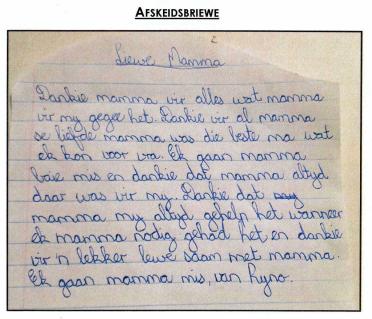 AFSKEIDSBRIEWE
2
Liewe Mamma
Dankie mamma vir alles wat mamma
vir my gegee het. Dankie vir al mamma
se liefde mamma was die beste ma wat
ek kon voor vra. Ek gaan mamma
baie mis en dankie dat mamma altyd
daar was vir my. Dankie dat my
mamma my altyd gehelp het wanneer
ek mamma nodig gehad het en dankie
vir 'n lekker lewe saam met mamma.
Ek gaan mamma mis, van Ryno.